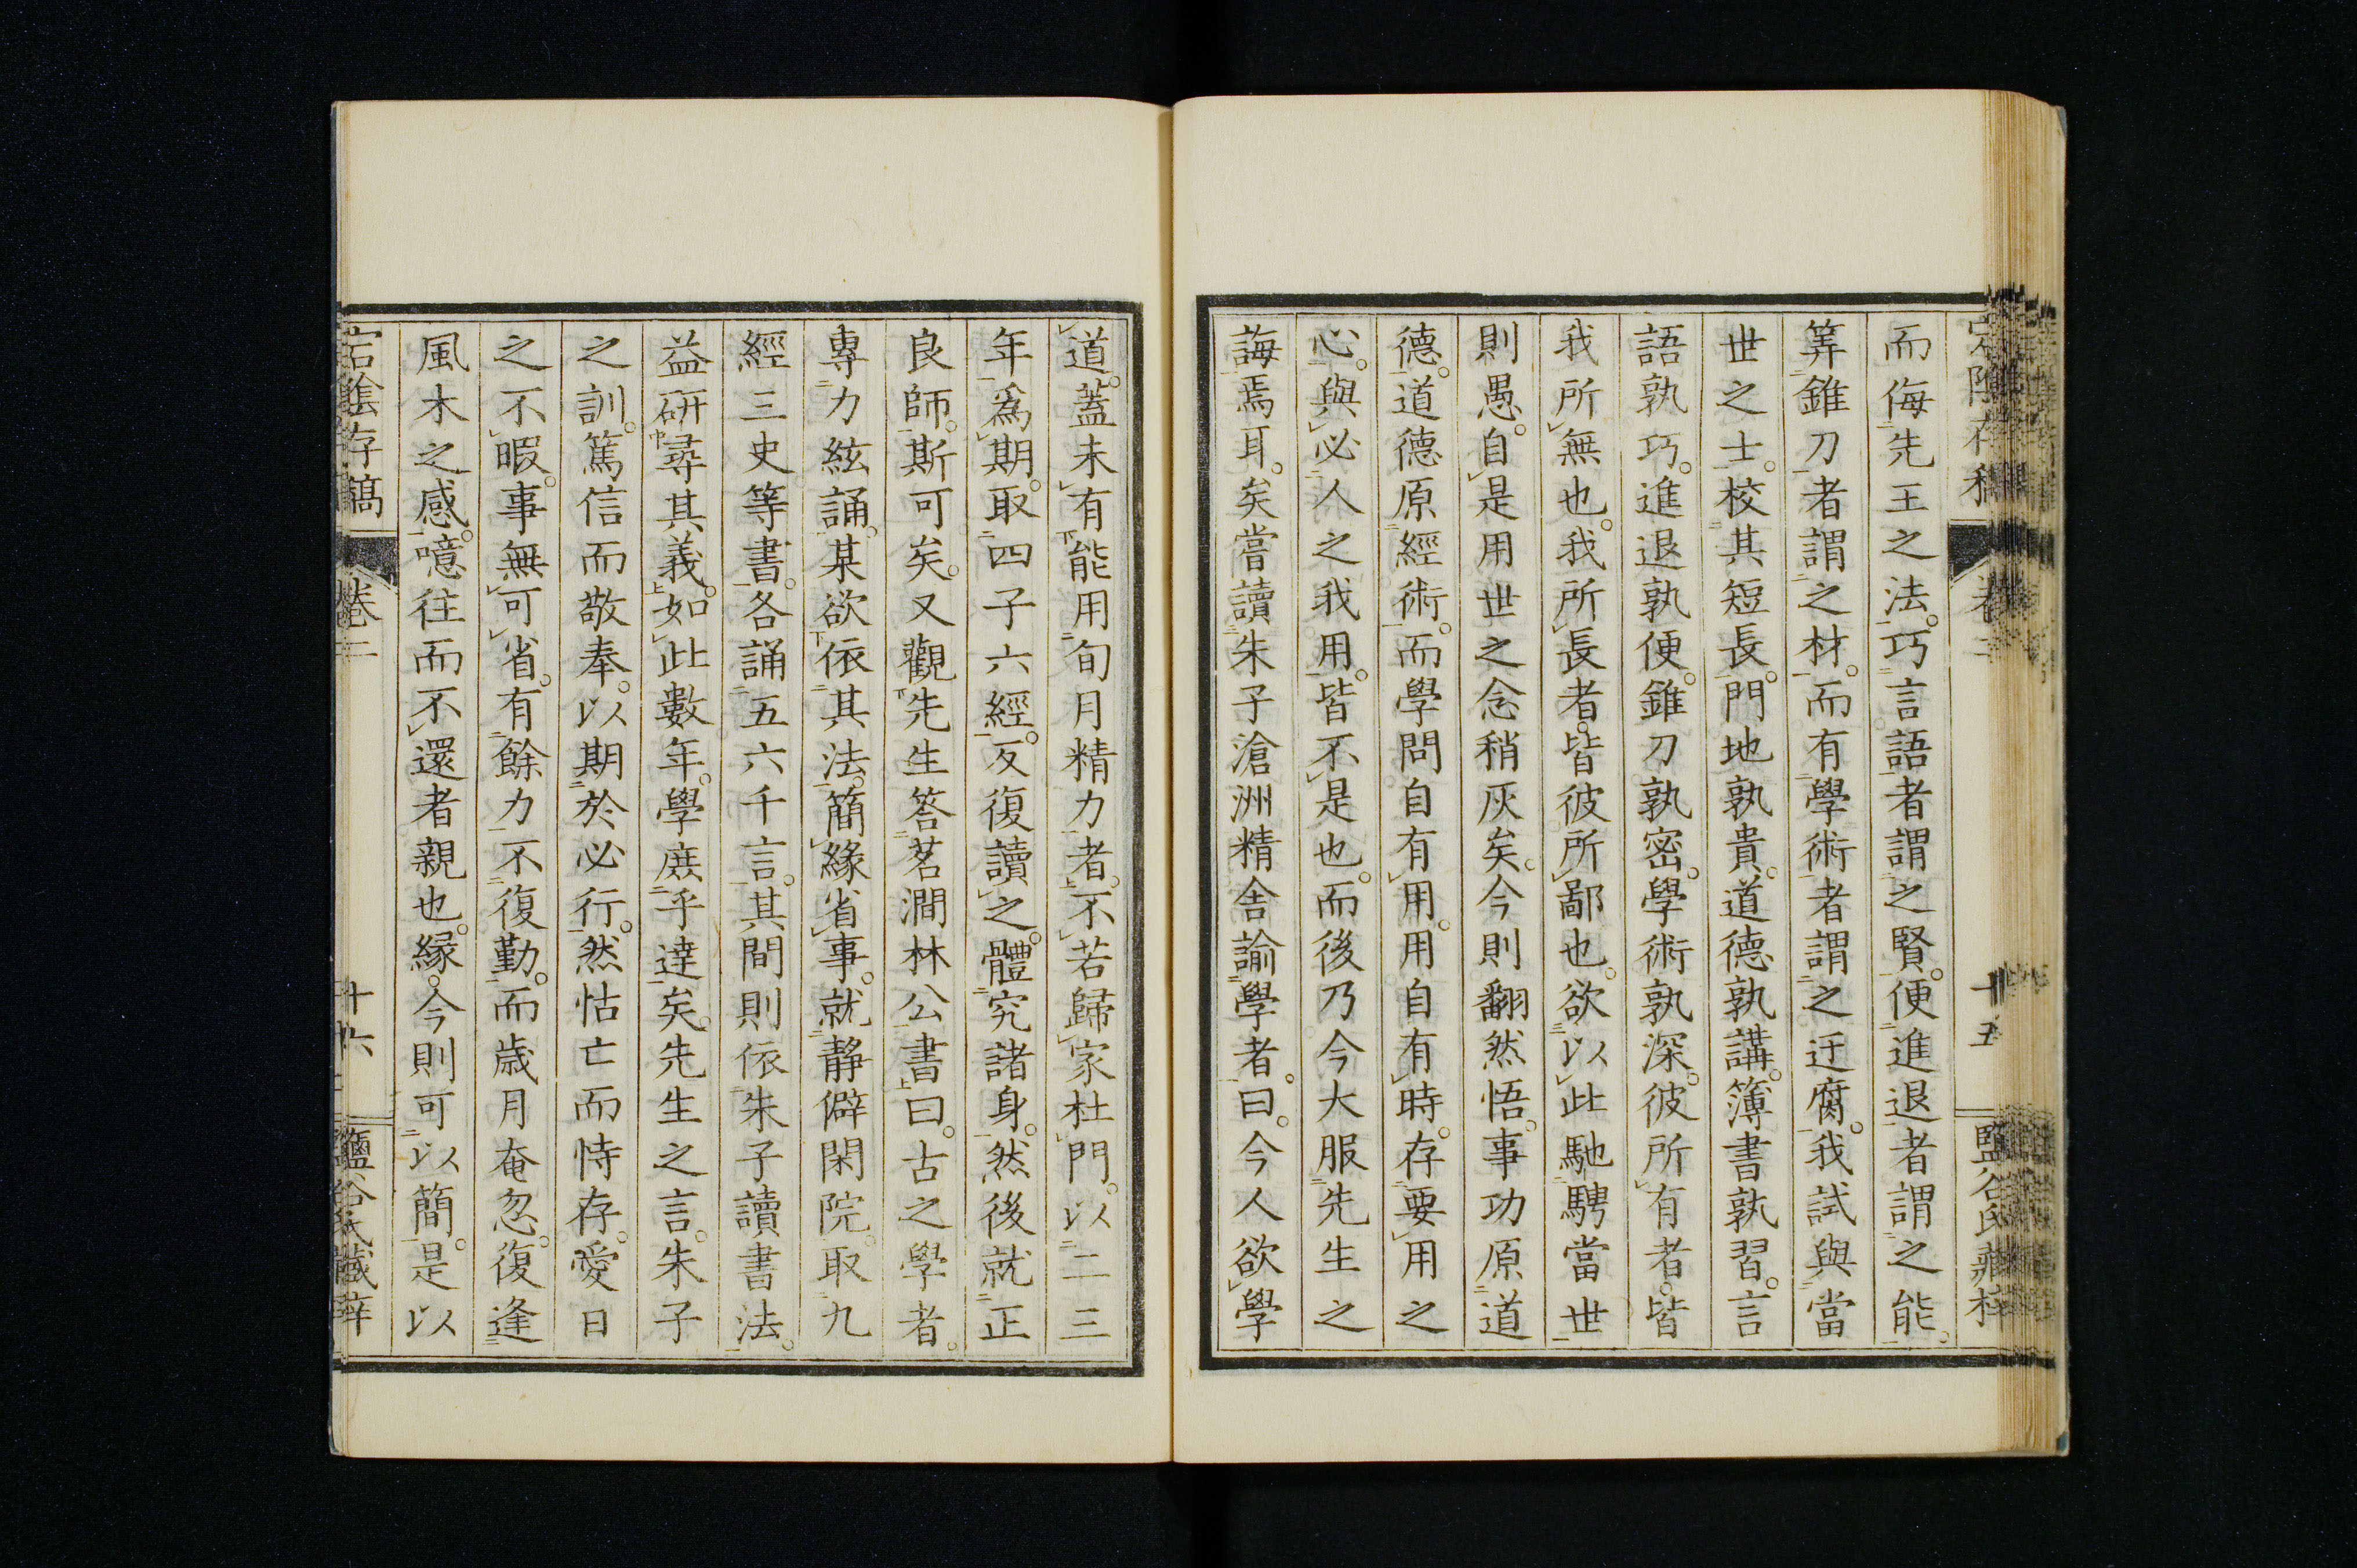 宕陰存稿
卷三
十五
鹽谷氏藏梓
而侮先王之法。巧言語者謂之賢。便進退者謂之能。
筭錐刀者謂之材。而有學術者謂之迂腐。我試與當
世之士。校其短長。門地孰貴。道德孰講。簿書孰習。言
語孰巧。進退孰便。錐刀孰密。學術孰深。彼所有者。皆
我所無也。我所長者。皆彼所鄙也。欲以此馳騁當世
則愚。自是用世之念稍灰矣。今則翻然悟。事功原道
德。道德原經術。而學問自有用。用自有時。存要用之
心。與必人之我用。皆不是也。而後乃今大服先生之
誨焉耳。矣嘗讀朱子滄洲精舍諭學者。曰。今人欲學
道。蓋未有能用旬月精力者。不若歸家杜門。以二三
年爲期。取四子六經。反復讀之。體究諸身。然後就正
良師。斯可矣。又觀先生答茗澗林公書曰。古之學者。
專力絃誦。某欲依其法。簡緣省事。就靜僻閑院。取九
經三史等書。各誦五六千言。其間則依朱子讀書法。
益研尋其義。如此數年。學庶乎達矣。先生之言。朱子
之訓。篤信而敬奉。以期於必行。然怙亡而恃存。愛日
之不暇。事無可省。有餘力不復勤。而歲月奄忽。復逢
風木之感。噫往而不還者親也。緣今則可以簡。是以
宕陰存稿
卷三
十六
鹽谷氏藏梓